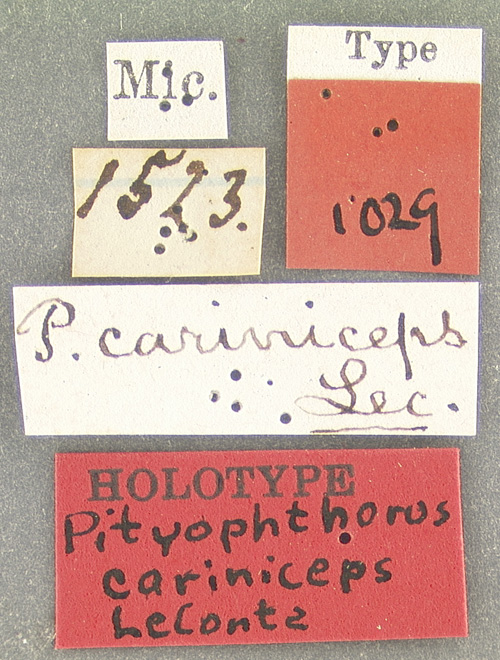 Mic.
Type
1523.
1029
P. cariniceps
Lec.
HOLOTYPE
Pityophthorus
cariniceps
LeConte